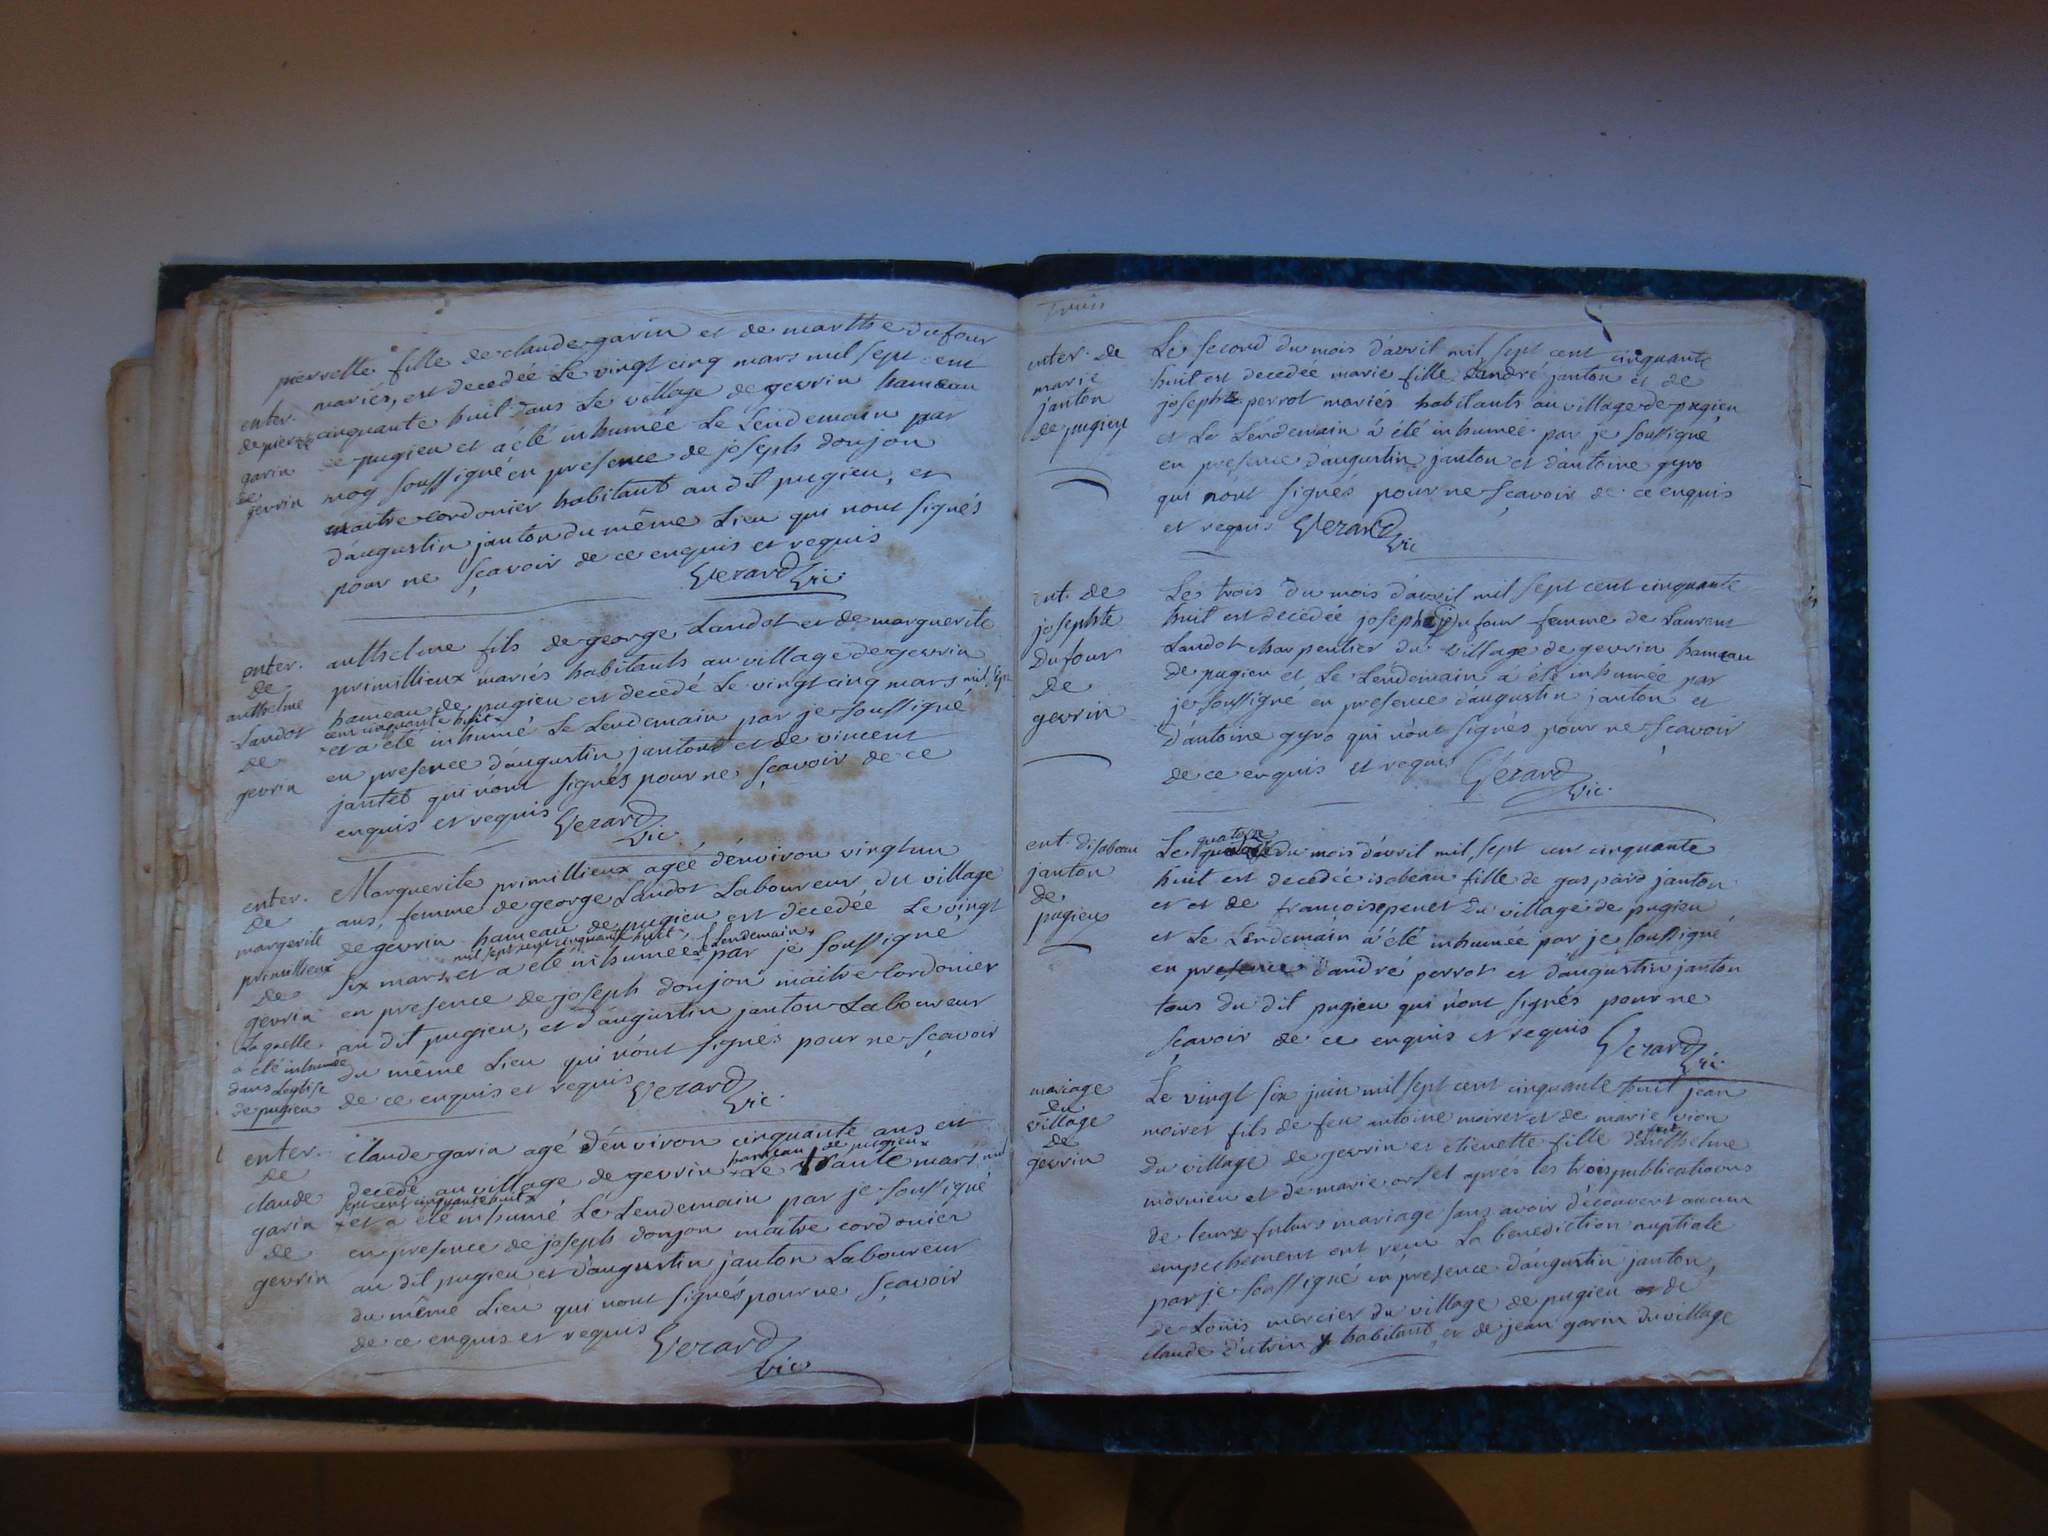 pierrette fille de claude garin et de marthe dufour
mariés, est decedée Le vingt cinq mars mil sept cent
enter.
de pierrette
garin
de
gevrin
cinquante huit dans Le village de gevrin hameau
de pugieu et a été inhumée Le Lendemain par
moy soussigné en presence de joseph donjon
maitre cordonier habitant au dit pugieu, et
d'augustin janton du même Lieu qui n'ont signés
pour ne sçavoir de ce enquis et requis
Gerard vic.
enter.
de
anthelme
Landot
de
gevrin
anthelme fils de george Landot et de marguerite
primillieux mariés habitants au village de gevrin
hameau de pugieu est decedé Le vingt cinq mars mil sept
cent cinquante huit
et a été inhumé Le Lendemain par je soussigné
en presence d'augustin janton et de vincent
jantet qui n'ont signés pour ne sçavoir de ce
enquis et requis Gerard
vic.
enter.
de
margerite
primillieux
de
gevrin
Laquelle
a été inhumée
dans L'eglise
de pugieu
Marguerite primillieux agée d'environ vingt un
ans, femme de george Landot Laboureur du village
de gevrin hameau de pugieu est decedée Le vingt
mil sept cent cinquante huit Le Lendemain
six mars et a été inhumée par je soussigné
en presence de joseph donjon maitre cordonier
au dit pugieu, et d'augustin janton Laboureur
du même Lieu qui n'ont signés pour ne sçavoir
de ce enquis et requis Gerard
vic.
enter.
de
claude
garin
de
gevrin
claude garin agé d'environ cinquante ans est
hameau de pugieu
decedé au village de gevrin Le trante mars mil
sept cent cinquante huit
et a été inhumé Le Lendemain par je soussigné
en presence de joseph donjon maitre cordonier
au dit pugieu et d'augustin janton Laboureur
du même Lieu qui n'ont signés pour ne sçavoir
de ce enquis et requis Gerard
vic.
Trois
enter. de
marie
janton
de pugieu
Le second du mois d'avril mil sept cent cinquante
huit est decedée marie fille d'andré janton et de
josephte perrot mariés habitants au village de pugieu
et Le Lendemain a été inhumée par je soussigné
en presence d'augustin janton et d'antoine gyro
qui n'ont signés pour ne sçavoir de ce enquis
et requis Gerard
vic
ent. de
josephte
Dufour
de
gevrin
Le trois du mois d'avril mil sept cent cinquante
huit est decedée josephte dufour femme de Laurent
Landot charpentier du village de gevrin hameau
de pugieu et Le Lendemain a été inhumée par
je soussigné en presence d'augustin janton et
d'antoine gyro qui n'ont signés pour ne scavoir
de ce enquis et requis Gerard
vic.
ent. d'isabeau
janton
de
pugieu
quatorze
Le du mois d'avril mil sept cent cinquante
huit est decedée isabeau fille de gaspard janton
et et de francoise penet du village de pugieu
et Le Lendemain a été inhumée par je soussigné
en presence d'andré perrot et d'augustin janton
tous du dit pugieu qui n'ont signés pour ne
sçavoir de ce enquis et requis Gerard
vic.
mariage
du
village
de
gevrin
Le vingt six juin mil sept cent cinquante huit jean
moiret fils de feu antoine moiret et de marie vion
du village de gevrin et etienette fille d'anthelme
mornieu et de marie orset aprés les trois publications
de leurs futurs mariage sans avoir découvert aucun
empechement ont reçu La benediction nuptiale
par je soussigné en presence d'augustin janton,
de Loüis mercier du village de pugieu de
claude dutrin y habitant et de jean garin du village